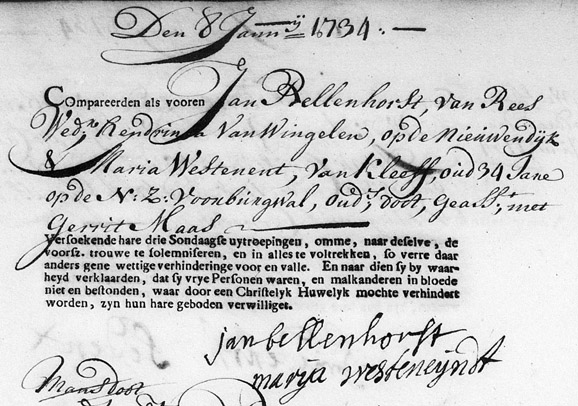 Den 8 Janu͞ij 1734.
Compareerden als vooren Jan Bellenhorst, van Rees
Wedr. Hendrina Van Wingelen, op de Nieuwendijk
& Maria Westenent, van Kleeff, oud 34 Jare
op de N: Z: Voorburgwal, Oud.s doot, Geasst. met
Gerrit Maas
Versoekende hare drie Sondaagse uytroepingen, omme, naar deselve, de
voorsz. trouwe te solemniseren, en in alles te voltrekken, so verre daar
anders gene wettige verhinderinge voor en valle. En naar dien sy by waar-
heyd verklaarden, dat sy vrye Personen waren, en malkanderen in bloede
niet en bestonden, waar door een Christelyk Huwelyk mochte verhindert
worden, zyn hun hare geboden verwilliget.
jan bellenhorst
marija westeneijndt
Mans doot